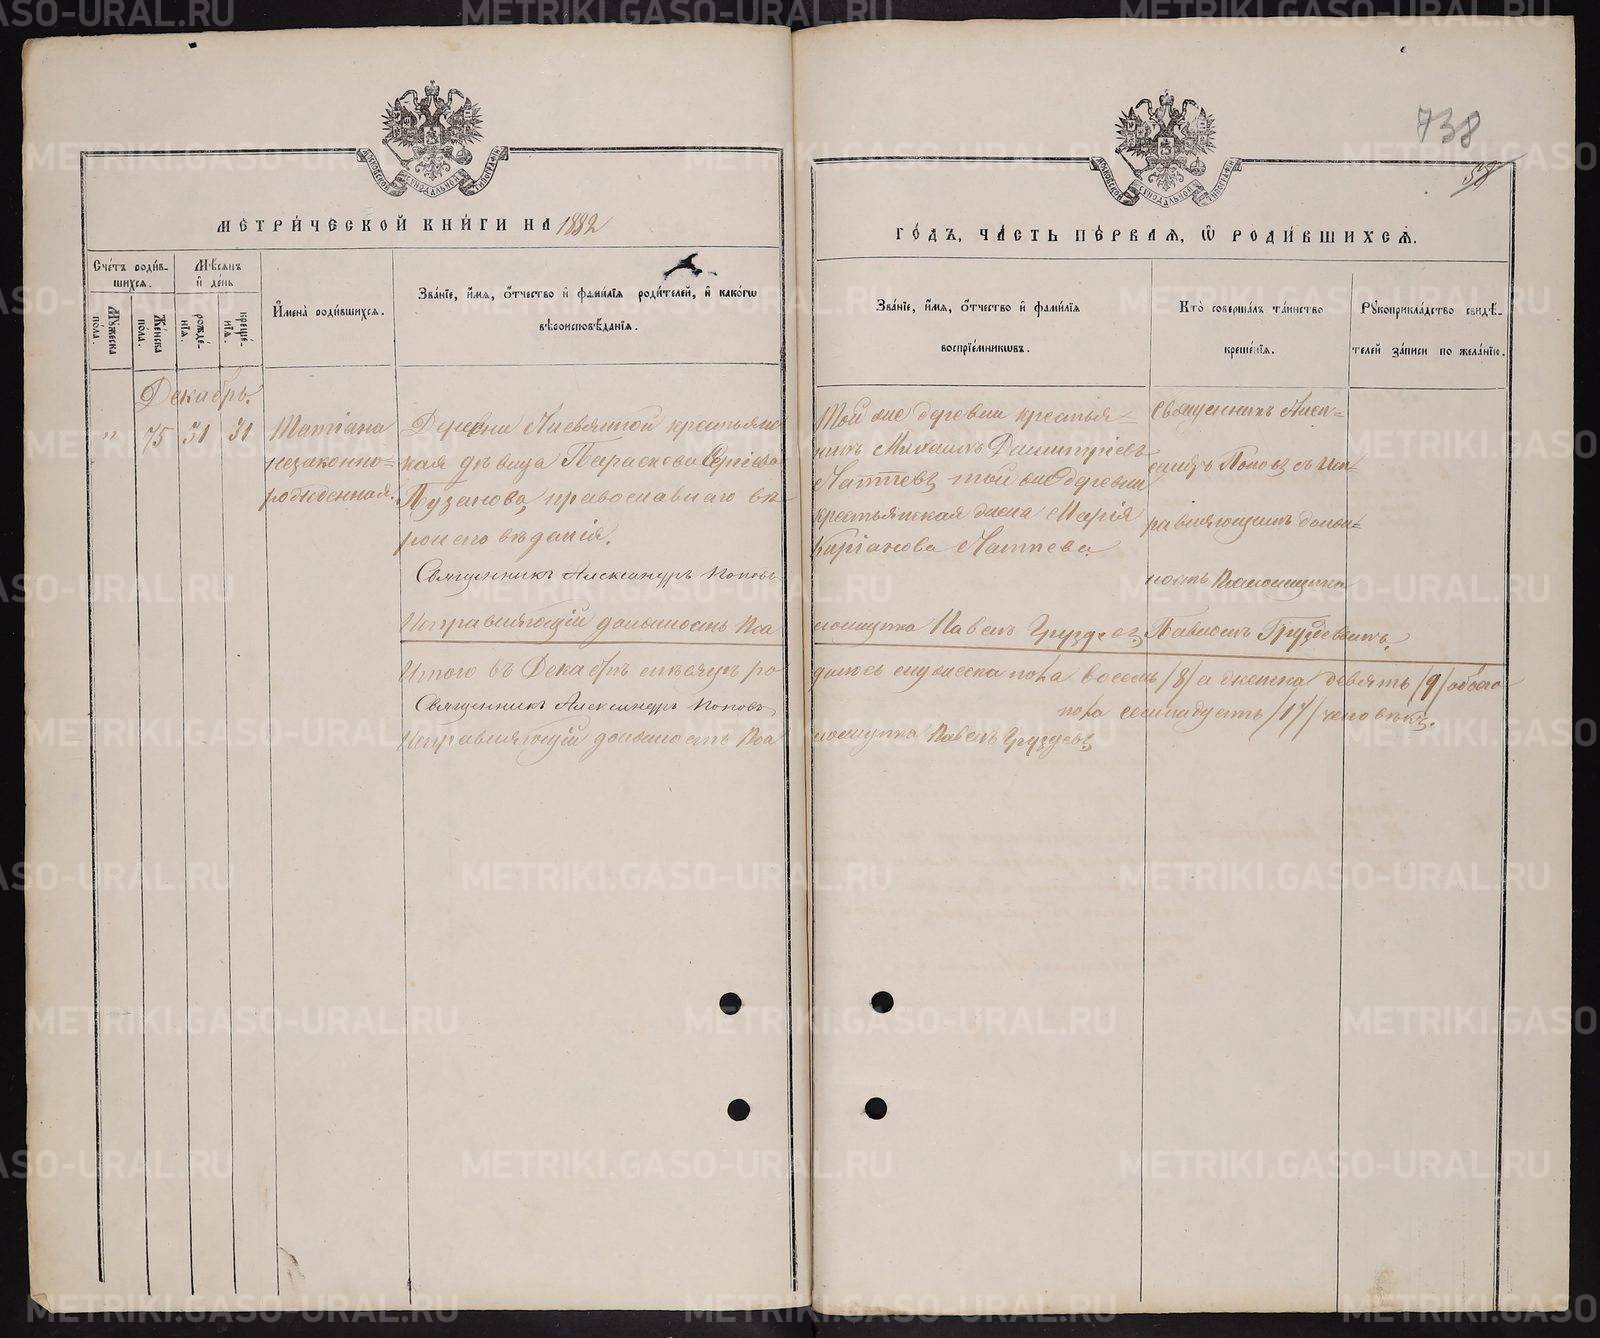 738
58
МОСКОВСКОЙ СѴНОДАЛЬНОЙ ТИПОГРАФІИ
МОСКОВСКОЙ СѴНОДАЛЬНОЙ ТИПОГРАФІИ
МЕТРИ́ЧЕСКОЙ КНИ́ГИ НА 1882
ГО́ДЪ, ЧА́СТЬ ПЕ́РВАЯ, Ѽ РОДИ́ВШИХСѦ.
Сче́тъ роди́в-
шихсѧ.
Мѣсѧцъ
и҆ де́нь
Мꙋжеска
по́ла.
Же́нска
по́ла.
рожде́-
нїѧ.
креще́-
нїѧ.
И҆мена̀ роди́вшихсѧ.
Зва́нїе, и҆́мѧ, ѻ҆́тчество и҆ фами́лїѧ роди́телей, и҆ како́гѡ
вѣроисповѣ́данїѧ.
Зва́нїе, и҆́мѧ, ѻ҆́тчество и҆ фами́лїѧ
воспрїе́мникѡвъ.
Кто̀ соверша́лъ та́инство
креще́нїѧ.
Рꙋкоприкла́дство свидѣ́-
телей за́писи по жела́нїю.
Декабрь.
" 75 31 31
Татіана
незаконно-
рожденная.
Деревни крестьянс
кая дѣвица Параскева Сергіева
Пузанова, православнаго вѣ
роисповѣданія.
Священникъ Александръ Поповъ
Исправляющій должность Пса
Той же деревни крестья-
нинъ Михаилъ Димитріевъ
Лаптевъ, той же деревни
крестьянская жена Марія
Киріанова Лаптева.
ломщика Павелъ Груздевъ
Священникъ Алек-
сандръ Поповъ съ исп-
равляющимъ долж-
ность Псаломщика
Павломъ Груздевымъ.
Итого въ Декабрѣ мѣсяцѣ ро
дилось мужеска пола восемь /8/ а женска девять /9/ обоего
пола семнадцать /17/ человѣкъ.
Священникъ Александръ Поповъ
Исправляющій должность Пса
ломщика Павелъ Груздевъ
METRIKI.GASO-URAL.RU